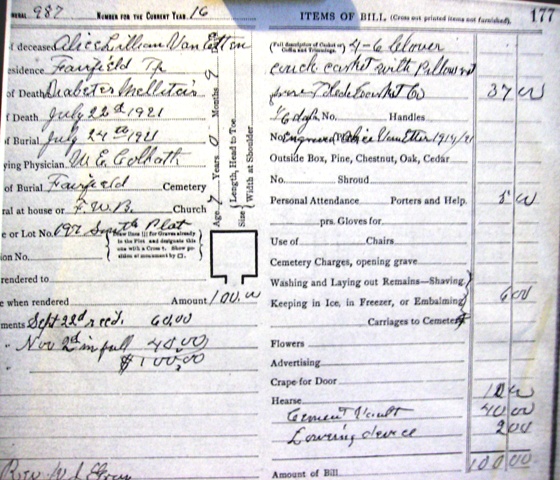 987 NUMBER FOR THE CURRENT YEAR 16
deceased Alice Lillian Van Etten
esidence Fairfield Tp
of Death Diabetes Mellitis
Death July 22d 1921
Burial July 24th 1921
ying Physician
of Burial Fairfield Cemetery
ral at house or F.W.B. Church
e or Lot No. 697 Smith Plot
(Draw lines for Graves already in the Plot and designate this one with a Cross †. Show position of monument by □.)
on No.
rendered to
e when rendered Amount 100.00
ments Sept 22d rec'd. 60.00
" Nov 2d in full 40.00
" $100.00
Rev. W.
Age 7 Years 0 Months 9 D
Size { Length, Head to Toe
Width at Shoulder
ITEMS OF BILL, (Cross out printed items not furnished). 177
(Full description of Casket or Coffin and Trimmings.) 4-6 Clover
couch casket with Pillow
Toledo Casket Co 37 00
No. Handles
No. Engraved Plate Alice VanEtten 1914/21
Outside Box, Pine, Chestnut, Oak, Cedar
No. Shroud
Personal Attendance Porters and Help. 5 00
prs. Gloves for
Use of Chairs
Cemetery Charges, opening grave
Washing and Laying out Remains—Shaving
Keeping in Ice, in Freezer, or Embalming 6 00
Carriages to Cemetery
Flowers
Advertising
Crape for Door
Hearse 10 00
Cement Vault 40 00
Lowering device 2 00
Amount of Bill 100 00